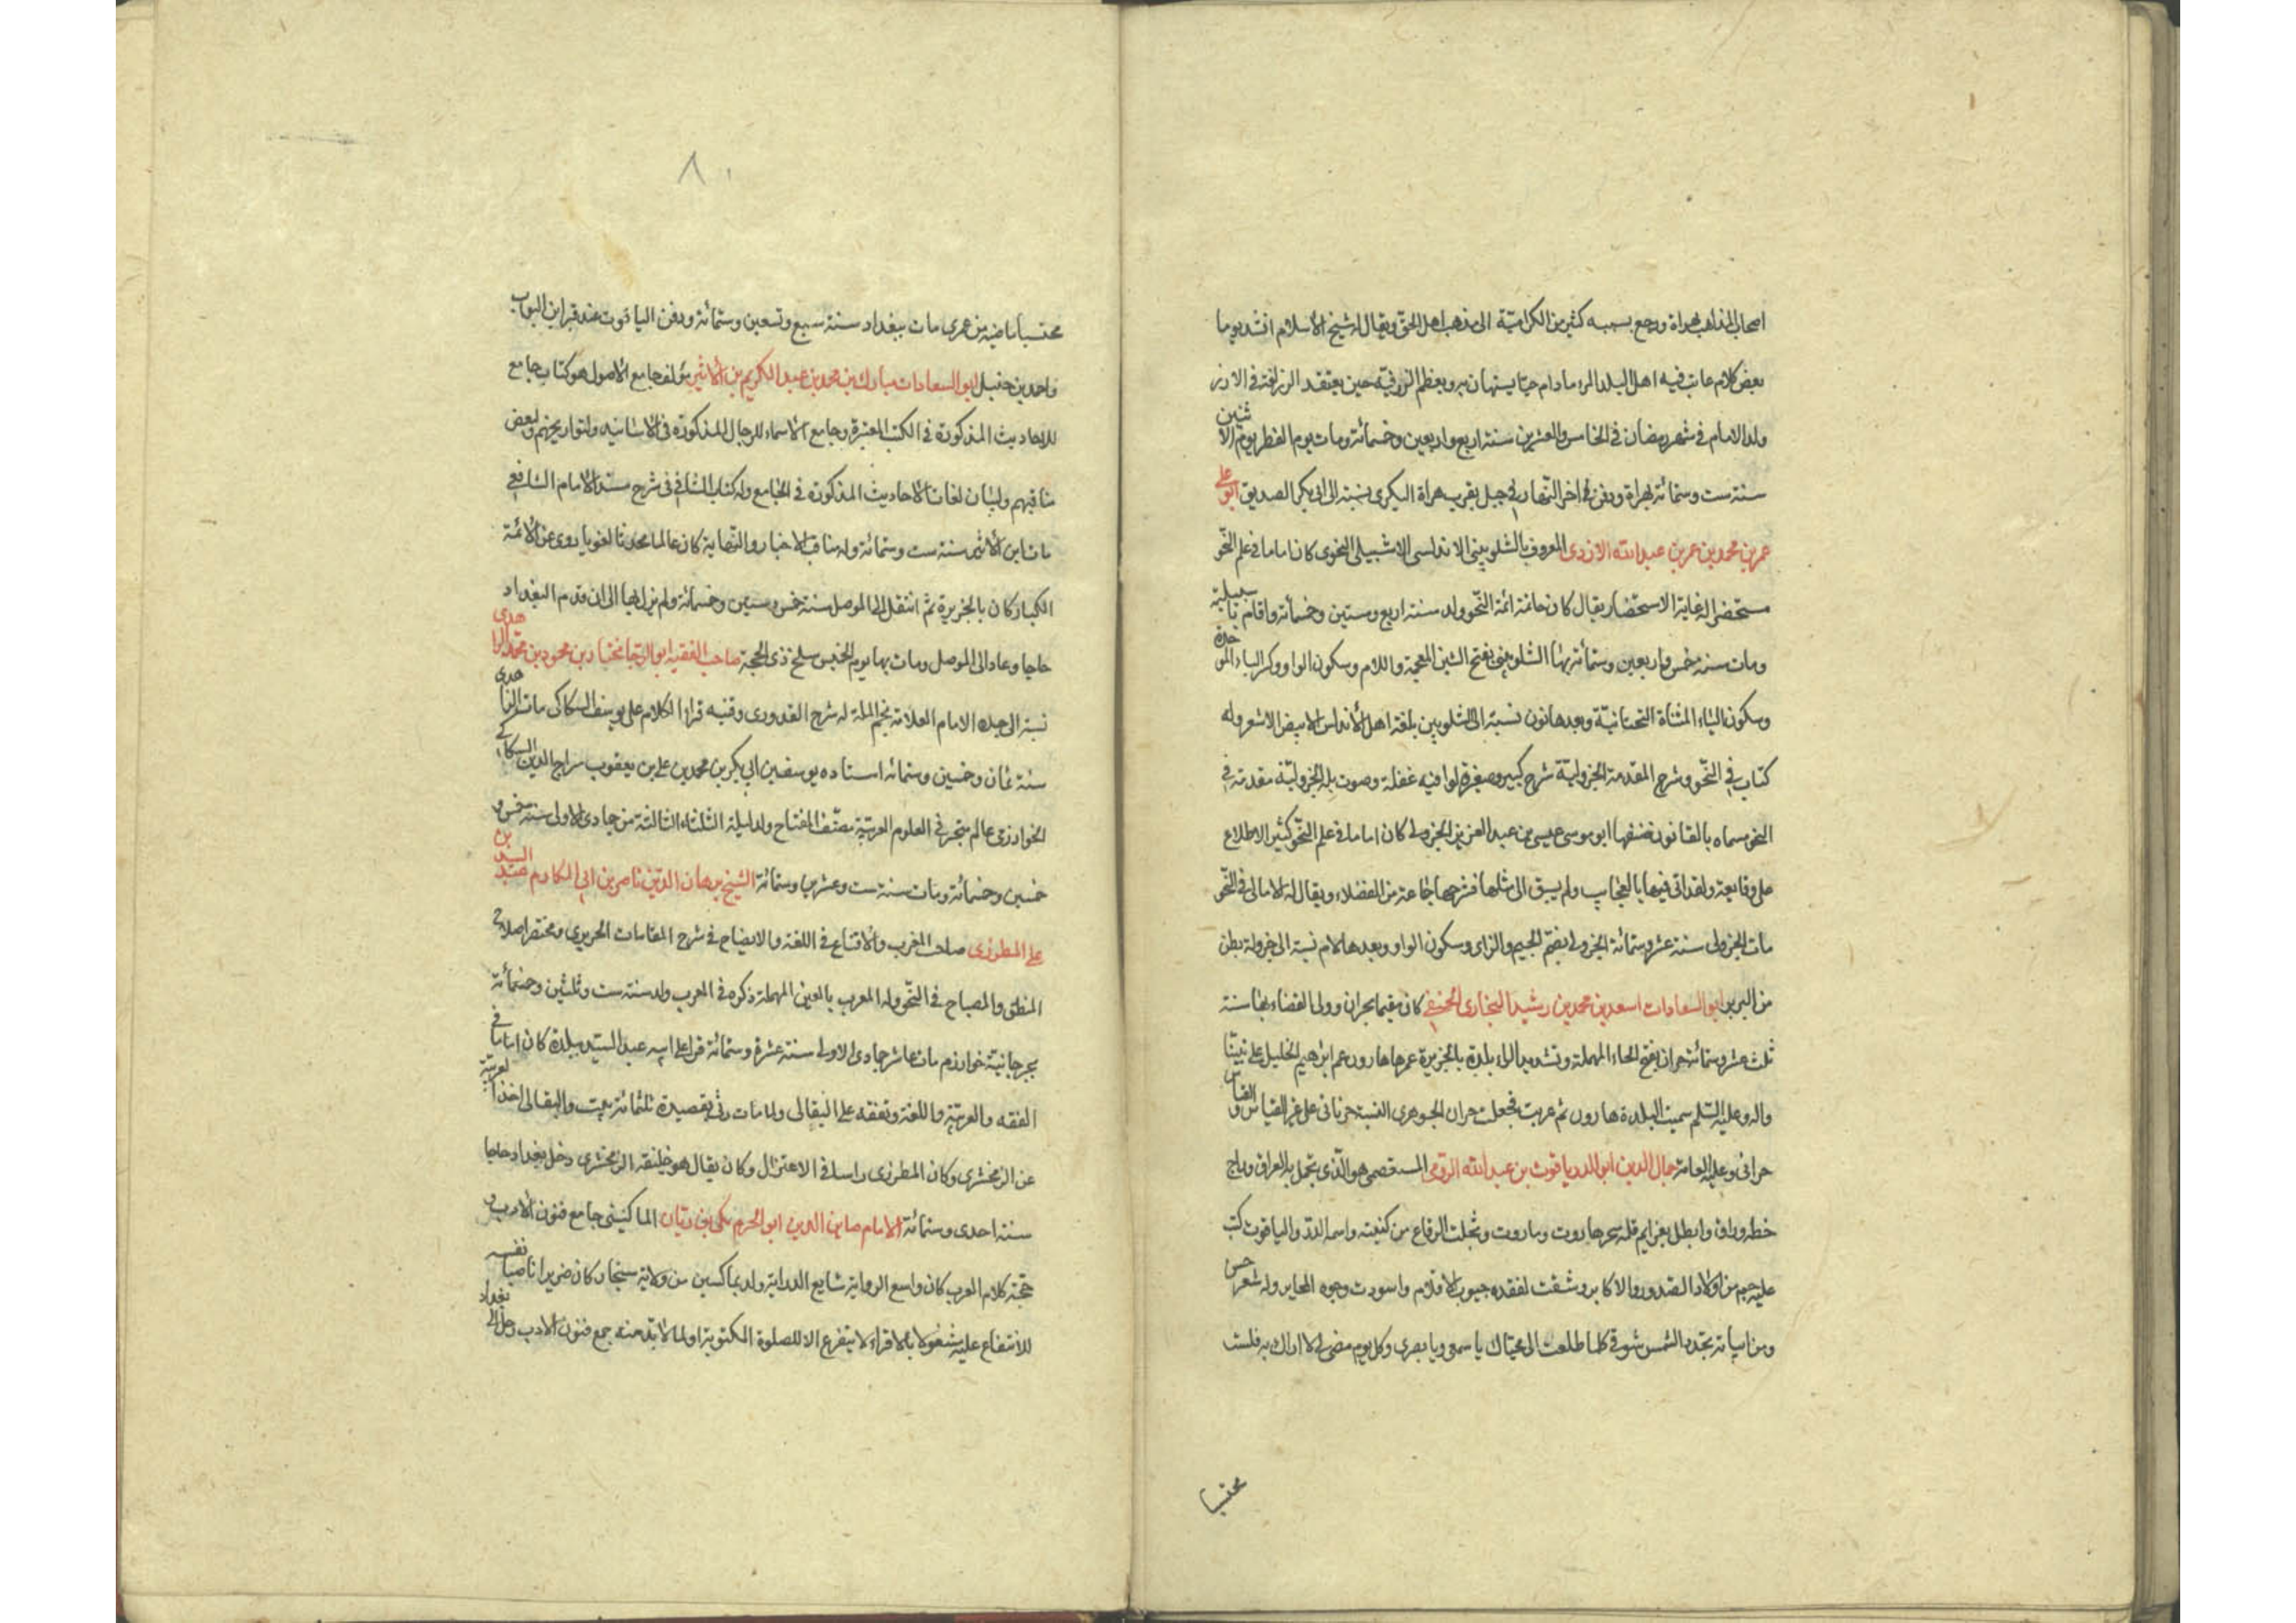 اصحاب المذاهب بهراة ورجع بسببه كثير من الكرامية الى مذهب اهل الحق ويقال له شيخ الاسلام انشد يوما
بعض كلام عاتب فيه اهل البلد المرء مادام حيا يستهان به ويعظم الرزء فيه حين يفتقد
ولد الامام فى شهر رمضان فى الخامس والعشرين سنة اربع واربعين وخمسمائة ومات يوم الفطر يوم الاثنين
سنة ست وستمائة بهراة ودفن فى اخر النهار فى جبل بقرب هراة البكرى نسبته الى ابى بكر الصديق ابو على
عمر بن محمد بن عمر بن عبد الله الازدى المعروف بالشلوبينى الاندلسى الاشبيلى النحوى كان اماما فى علم النحو
مستحضرا له غاية الاستحضار يقال كان خاتمة ائمة النحو ولد سنة اربع وستين وخمسمائة واقام
ومات سنة خمس واربعين وستمائة بها الشلوبينى بفتح الشين المعجمة واللام وسكون الواو وكسر الباء الموحدة
وسكون الياء المثناة التحتانية وبعدها نون نسبة الى الشلوبين بلغة اهل الاندلس الابيض الاشقر وله
كتاب فى النحو وشرح المقدمة الجزولية شرح كبير وصغير قالوا فيه غفلة وصوت بله الجزولية مقدمة فى
النحو سماه بالقانون صنفها ابو موسى عيسى بن عبد العزيز الجزولى كان اماما فى علم النحو كثير الاطلاع
على دقايقه ولقد اتى فيها بالعجايب ولم يسبق الى مثلها فشرحها جماعة من الفضلاء ويقال له الامالى فى النحو
مات الجزولى سنة عشر وستمائة الجزولى بضم الجيم والزاى وسكون الواو وبعدها لام نسبة الى جزولة بطن
من البربر ابو السعادات اسعد بن محمد بن رشيد البخارى الحنفى كان مقيما بحران وولى القضاء بها سنة
ثلث عشر وستمائة حران بفتح الحاء المهملة وتشديد الراء بلدة بالجزيرة عمرها هارون عم ابرهيم الخليل على نبينا
واله وعليه السلم سميت البلدة هارون ثم عربت فجعلت حران الجوهرى النسبة حرنانى على غير القياس والقياس
حرانى وعليه العامة جمال الدين ابو الدر ياقوت بن عبد الله الرومى المستعصمى هو الذى تجمل به العراق وراج
خطه وراق وابطل بعزايم قلمه سحر هاروت وماروت وخجلت الرقاع من كنيته واسمه الدر والياقوت كتب
عليه جم من اولاد الصدور والاكابر وشقت لفقده جيوب الاقلام واسودت وجوه المحابر وله شعر حسن
ومن ابياته تجدد الشمس شوقى كلما طلعت الى محياك يا سمعى ويا بصرى وكل يوم مضى لا اراك به فلست
محتسبا
محتسبا ماضيه من عمرى مات ببغداد سنة سبع وتسعين وستمائة ودفن الياقوت عند قبر ابن البواب
واحمد بن حنبل ابو السعادات مبارك بن محمد بن عبد الكريم بن الاثير مؤلف جامع الاصول هو كتاب جامع
للاحاديث المذكورة فى الكتب المعتبرة وجامع الاسماء للرجال المذكورة فى الاسانيد ولتواريخهم وبعض
مناقبهم ولبيان لغات الاحاديث المذكورة فى الجامع وله كتاب الشافى فى شرح مسند الامام الشافعى
مات ابن الاثير سنة ست وستمائة وله مناقب الاخيار والنهاية كان عالما محدثا لغويا روى عن الائمة
الكبار كان بالجزيرة ثم انتقل الى الموصل سنة خمس وستين وخمسمائة ولم يزل بها الى ان قدم البغداد
حاجا وعاد الى الموصل ومات بها يوم الخميس سلخ ذى الحجة صاحب القنية ابو الرجا مختار بن محمود بن محمد الزاهدى
نسبة الى جده الامام العلامة نجم الملة له شرح القدورى وقنيه قرا الكلام على يوسف السكاكى مات الزاهدى
سنة ثمان وخمسين وستمائه استاده يوسف بن ابى بكر بن محمد بن على بن يعقوب سراج الدين السكاكى
الخوارزمى عالم متبحر فى العلوم العربية مصنف المفتاح ولد ليلة الثلثاء الثالثة من جمادى الاولى سنة خمس و
خمسين وخمسمائة ومات سنة ست وعشرين وستمائة الشيخ برهان الدين ناصر بن ابى المكارم عبد السيد بن
على المطرزى صاحب المغرب والاقناع فى اللغة والايضاح فى شرح المقامات الحريرى ومختصر اصلاح
المنطق والمصباح فى النحو وله المعرب بالعين المهملة ذكره فى المغرب ولد سنة ست وثلثين وخمسمائة
بجرجانية خوارزم مات عاشر جمادى الاولى سنة عشرة وستمائة قرا على ابيه عبد السيد ببلدة كان اماما فى
الفقه والعربية واللغة وتفقه على البقالى ولما مات رثى بقصيدة ثلثمائة بيت والبقالى اخذ العربية
عن الزمخشرى وكان المطرزى راسا فى الاعتزال وكان يقال هو خليفة الزمخشرى دخل بغداد حاجا
سنة احدى وستمائة الامام صاين الدين ابو الحرم مكى بن ريان الماكسينى جامع فنون الادب و
حجة كلام العرب كان واسع الرواية شايع الدراية ولد بماكسين من ولاية سنجار كان ضريرا ناصبا نفسه
للانتفاع عليه مشغولا بالاقراء لا يتفرغ الا للصلوة المكتوبة او لما لا بد منه جمع فنون الادب رحل الى بغداد